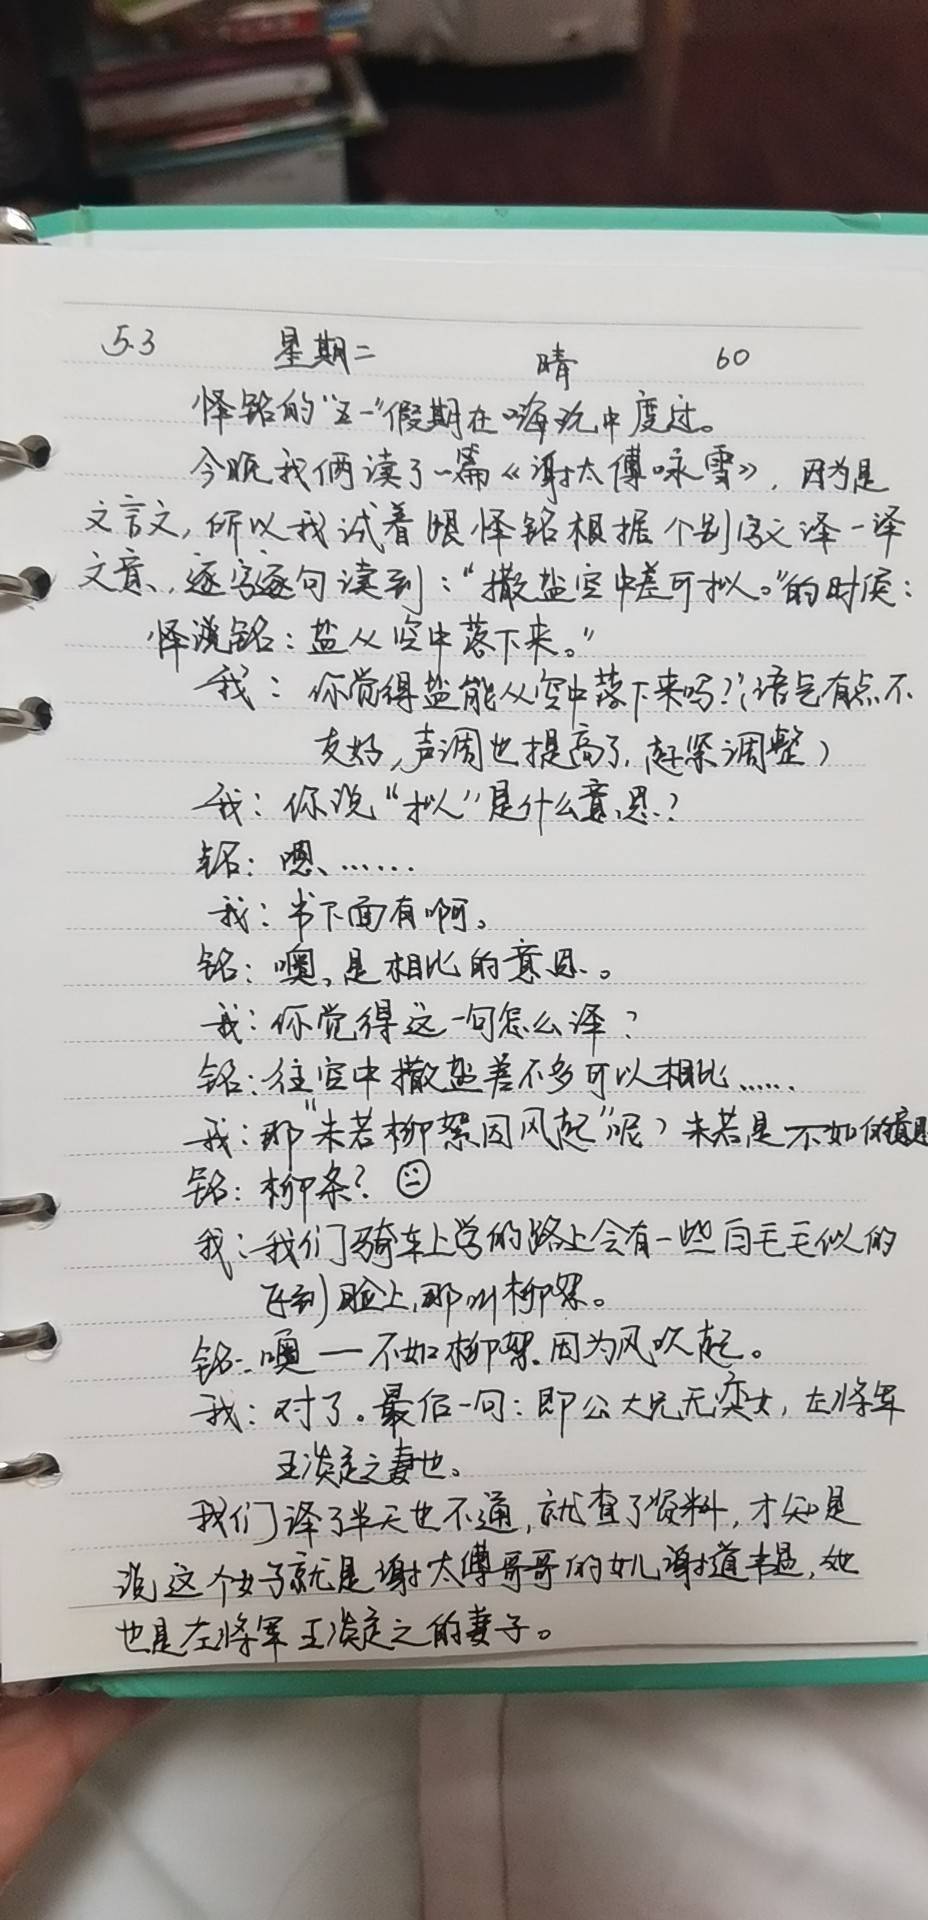 5.3 星期二 晴 60
怿铭的“五一”假期在嗨玩中度过。
今晚我俩读了一篇《谢太傅咏雪》,因为是
文言文,所以我试着跟怿铭根据个别字义译一译
文意,逐字逐句读到:“撒盐空中差可拟。”的时候:
怿铭:盐从空中落下来。”
我:你觉得盐能从空中落下来吗?(语气有点不
友好,声调也提高了,赶紧调整)
我:你说“拟”是什么意思?
铭:嗯……
我:书下面有啊。
铭:噢,是相比的意思。
我:你觉得这一句怎么译?
铭:往空中撒盐差不多可以相比……
我:那“未若柳絮因风起”呢?未若是不如的意思
铭:柳条?
我:我们骑车上学的路上会有一些白毛毛似的
飞到脸上,那叫柳絮。
铭:噢—不如柳絮因为风吹起。
我:对了。最后一句:即公大兄无奕女,左将军
王凝之妻也。
我们译了半天也不通,就查了资料,才知是
说这个女子就是谢太傅哥哥的女儿谢道韫,她
也是左将军王凝之的妻子。